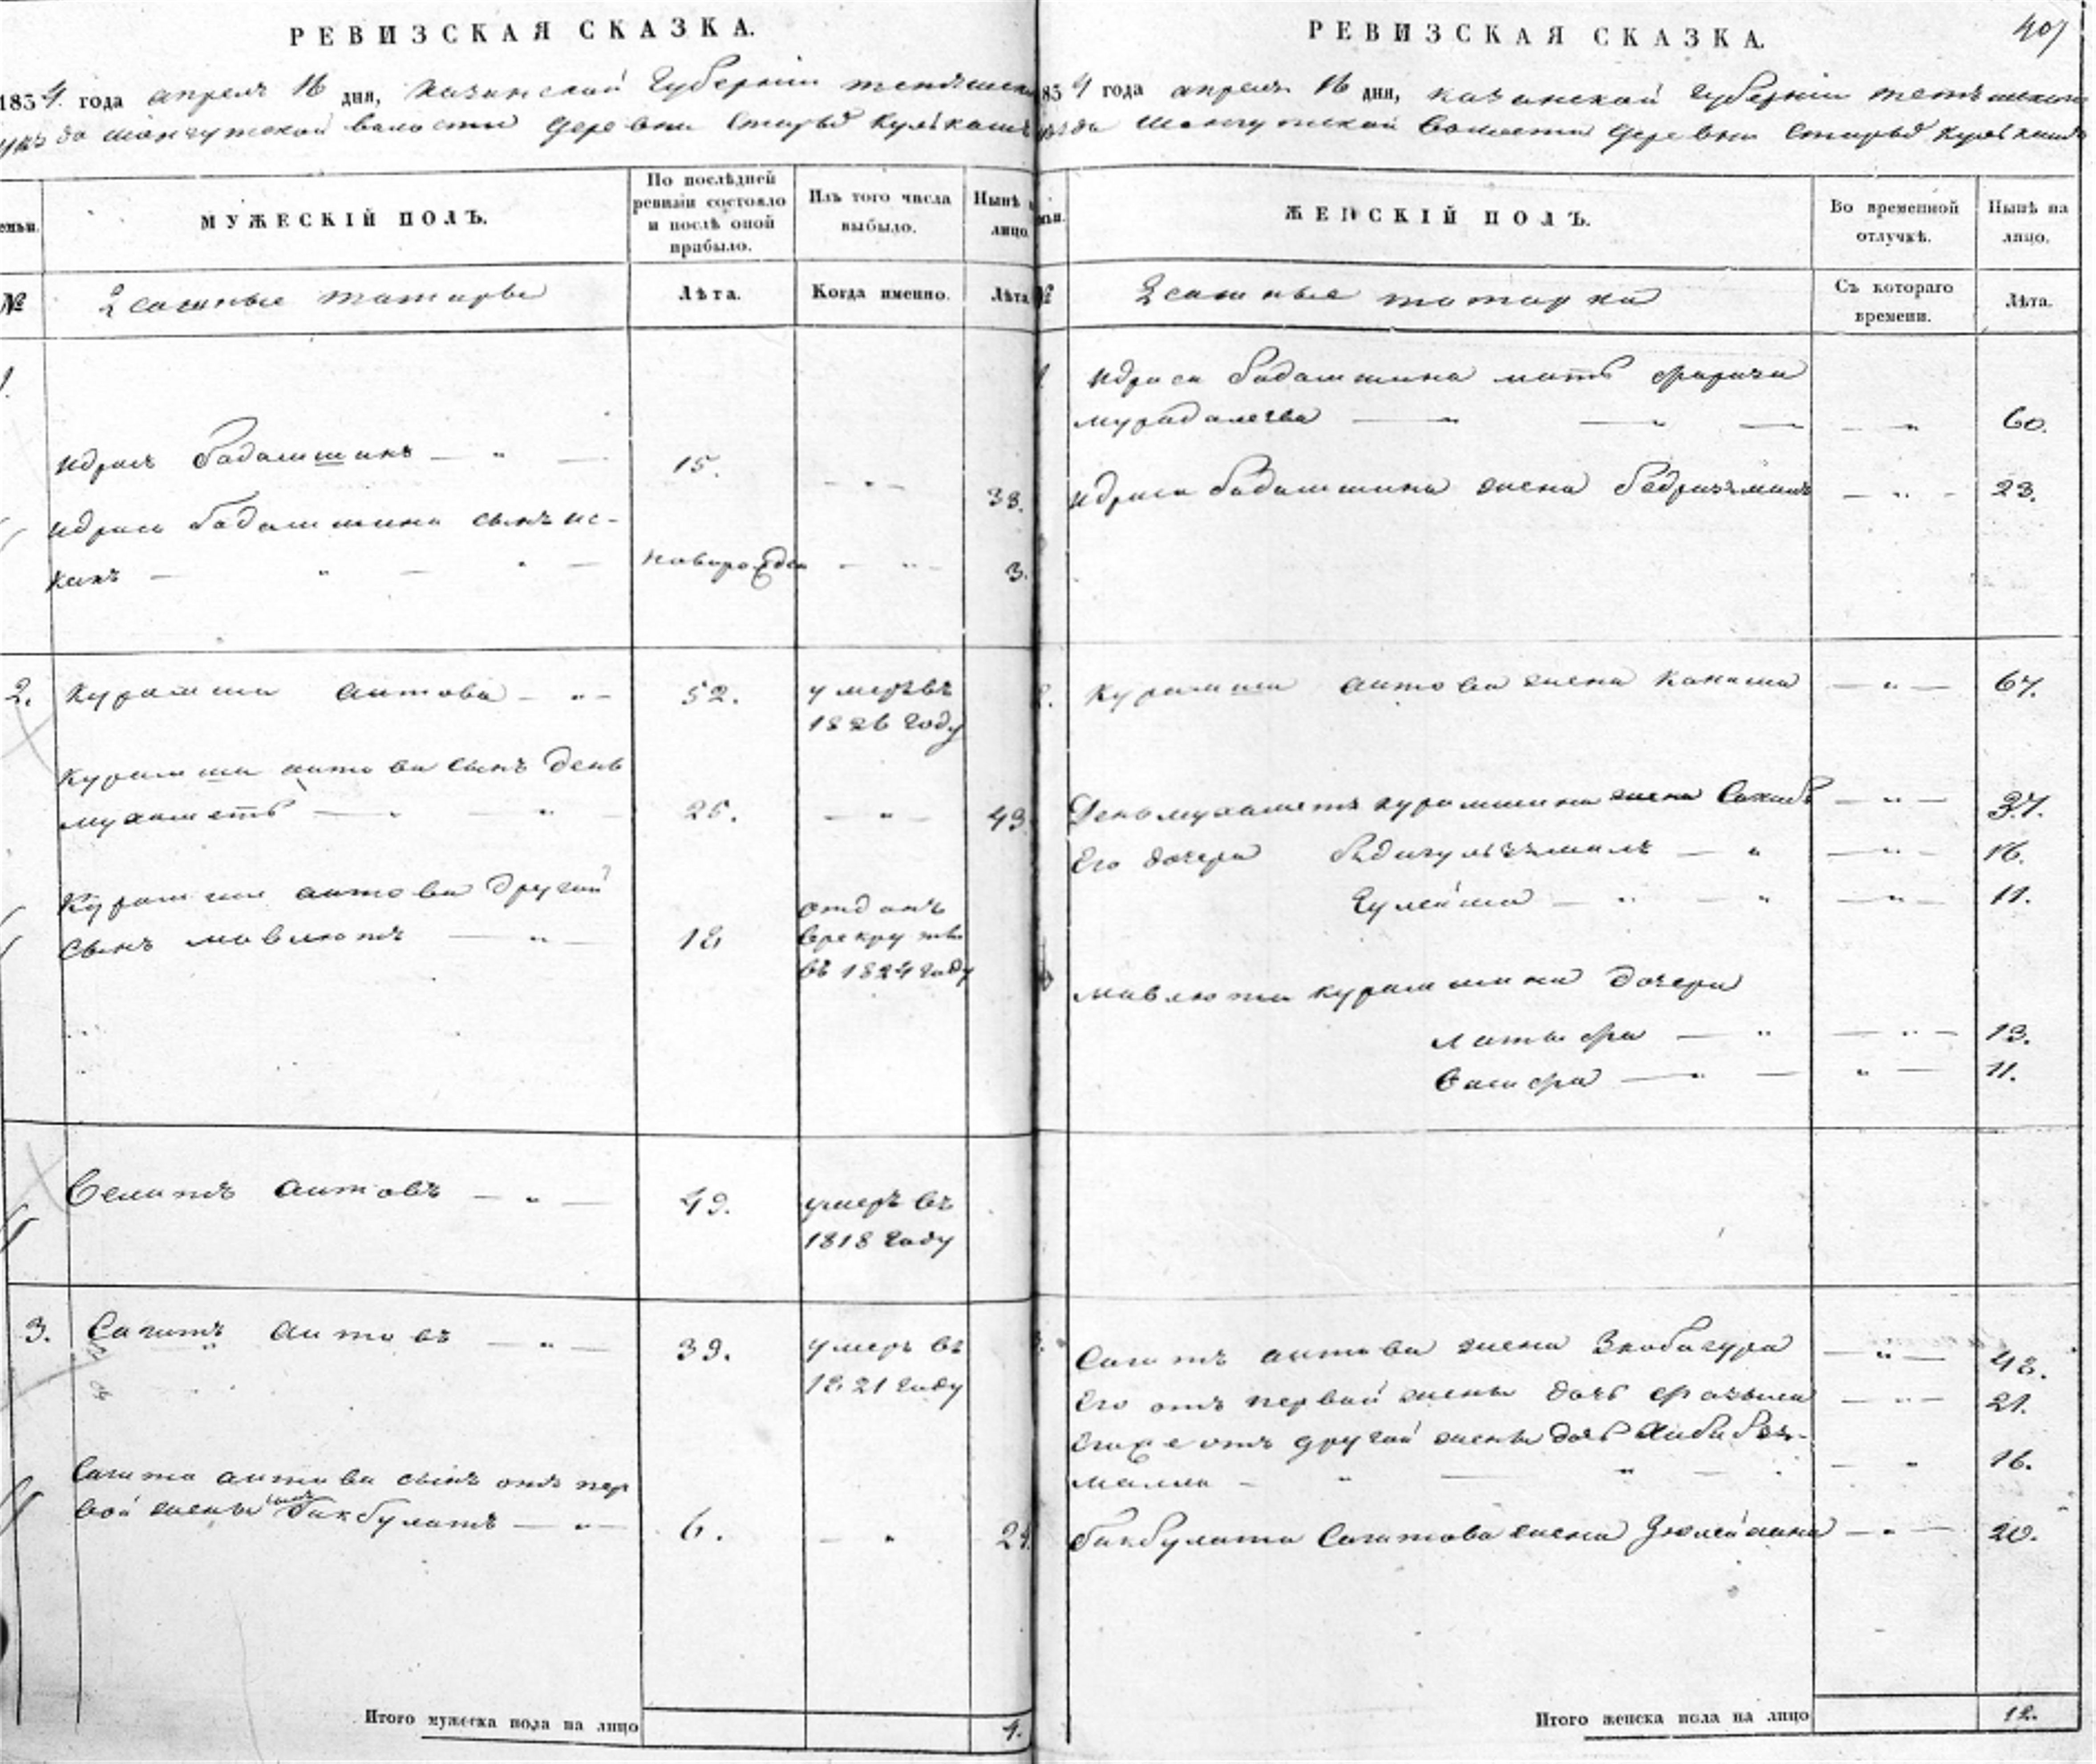 РЕВИЗСКАЯ СКАЗКА.
1834 года апреля 16 дня, Казанской Губернии тетюшска
уезда шонгутской волости деревни Старых Кулькаш
семьи.
МУЖЕСКІЙ ПОЛЪ.
По послѣдней ревизіи состояло и послѣ оной прибыло.
Изъ того числа выбыло.
Нынѣ на лицо.
№
Ясашные татары
Лѣта.
Когда именно.
Лѣта
1.
Идрисъ бадамшинъ — " — 15. — " — 33.
Идриса бадамшина сынъ ис-
канъ — " — " — новорожден — " — 3.
2. Курамша аитова — " — 52. умеръ въ
1826 году
Курамши аитова сынъ день
мухаметъ — " — " — 25. — " — 43
Курамши аитова другой
сынъ мавлютъ — " — 18 отданъ
врекруты
въ 1824 году
Селитъ аитовъ — " — 49. умеръ въ
1818 году
3. Сагитъ аитовъ — " — 39. умеръ въ
1821 году
Сагита аитова сынъ отъ пер
вой жены бикбулатъ — " — 6. — " 24
Итого мужеска пола на лицо 4.
РЕВИЗСКАЯ СКАЗКА.
407
1834 года апреля 16 дня, казанской губерніи тетюшскаго
уезда Шонгутской волости деревни Старых Кулькаш
семьи.
ЖЕНСКІЙ ПОЛЪ.
Во временной отлучкѣ.
Нынѣ на лицо.
№
Ясашные татарки
Съ котораго времени.
Лѣта.
1. Идриса бадамшина мать
мурадалеева — " — " — — " 60.
Идриса бадамшина жена бадризъмалъ — " — 23.
2. Курамши аитова жена — " — 67.
Деньмухаметъ курамшина жена Сахибъ — " — 37.
Его дочери — " — " — 16.
Гулейша — " — " — " — 11.
мавлюта курамшина дочери
латыфа — " — " — 13.
вагифа — " — " — 11.
3. Сагитъ аитова жена — " — 48.
Его отъ первой жены дочь — " — 21.
Егоже отъ другой жены дочь Хабибъ-
малла — " — " — " 16.
бикбулата Сагитова жена — " — 20.
Итого женска пола на лицо 12.